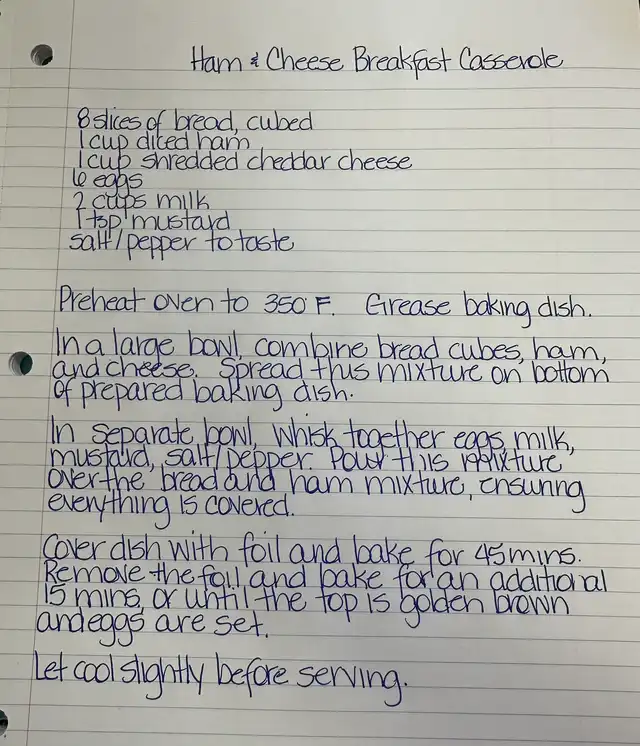 Ham & Cheese Breakfast Casserole
8 slices of bread, cubed
1 cup diced ham
1 cup shredded cheddar cheese
6 eggs
2 cups milk
1 tsp mustard
salt/pepper to taste
Preheat oven to 350°F. Grease baking dish.
In a large bowl, combine bread cubes, ham,
and cheese. Spread this mixture on bottom
of prepared baking dish.
In separate bowl, whisk together eggs, milk,
mustard, salt/pepper. Pour this mixture
over the bread and ham mixture, ensuring
everything is covered.
Cover dish with foil and bake for 45 mins.
Remove the foil and bake for an additional
15 mins, or until the top is golden brown
and eggs are set.
Let cool slightly before serving.